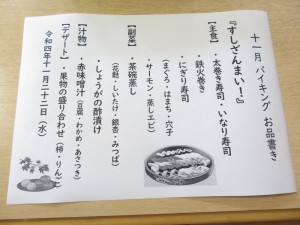 十一月 バイキング お品書き
『すしざんまい!』
【主食】・太巻き寿司・いなり寿司
・鉄火巻き
・にぎり寿司
(まぐろ・はまち・穴子
・サーモン・蒸しエビ)
【副菜】・茶碗蒸し
(花麩・しいたけ・銀杏・みつば)
・しょうがの酢漬け
【汁物】・赤味噌汁(豆腐・わかめ・あさつき)
【デザート】・果物の盛り合わせ(柿・りんご)
令和四年十一月二十二日(水)